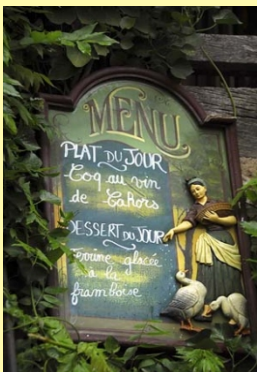 MENU
PLAT DU JOUR
Coq au vin
de Cahors
DESSERT DU JOUR
Terrine glacée
à la
framboise